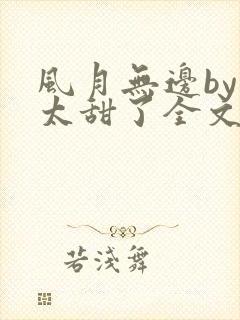 風月無邊by
太甜了全文
若淺舞